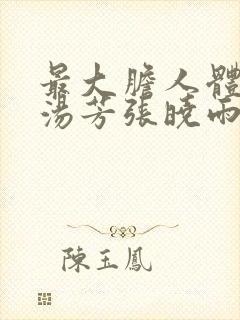 最大膽人體
湯芳張曉雨
陳玉鳳